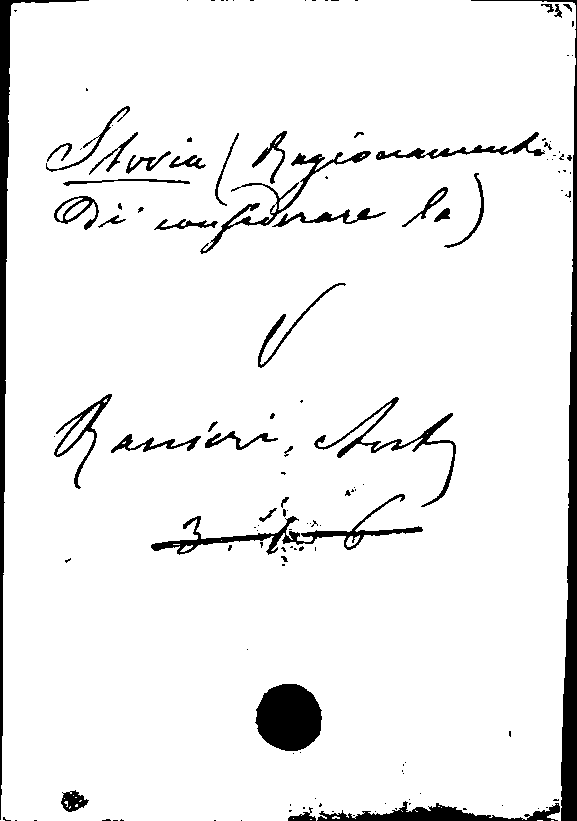 Storia (Ragionamento
di considerare la)
V
Ranieri, Ant
3. 1. 6